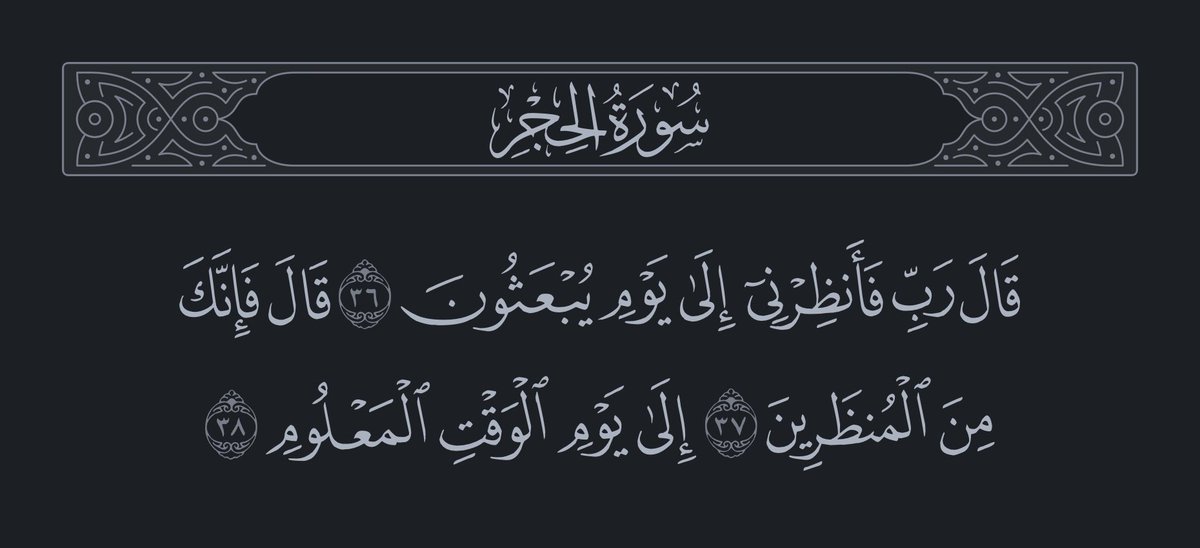 سُورَةُ الحِجْرِ
قَالَ رَبِّ فَأَنظِرْنِىٓ إِلَىٰ يَوْمِ يُبْعَثُونَ ٣٦ قَالَ فَإِنَّكَ
مِنَ ٱلْمُنظَرِينَ ٣٧ إِلَىٰ يَوْمِ ٱلْوَقْتِ ٱلْمَعْلُومِ ٣٨